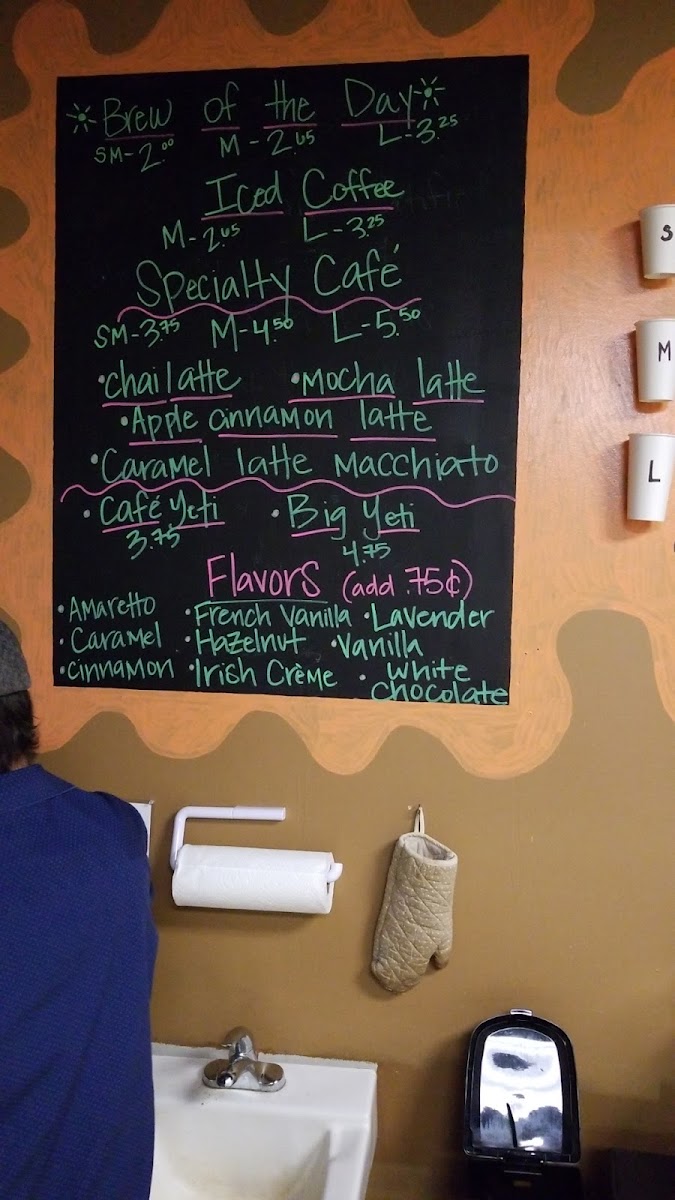 Brew of the Day
SM-2.00 M-2.65 L-3.25
Iced Coffee
M-2.65 L-3.25
Specialty Café
SM-3.75 M-4.50 L-5.50
•chai latte •Mocha latte
•Apple cinnamon latte
•Caramel latte Macchiato
•Café Yeti •Big Yeti
3.75 4.75
Flavors (add .75¢)
•Amaretto •French Vanilla •Lavender
•Caramel •Hazelnut •Vanilla
•cinnamon •Irish Crème •white
chocolate
S
M
L